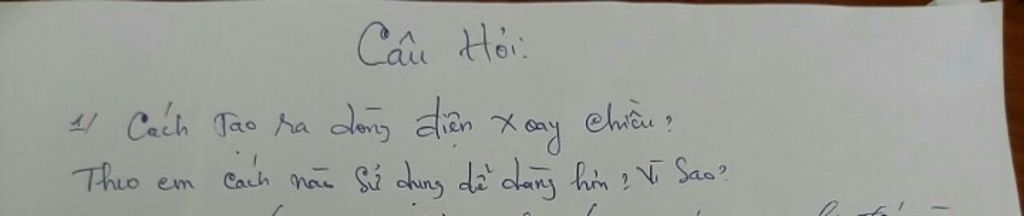 Câu Hỏi:
1/ Cách tạo ra dòng điện xoay chiều?
Theo em cách nào sử dụng dễ dàng hơn? Vì sao?